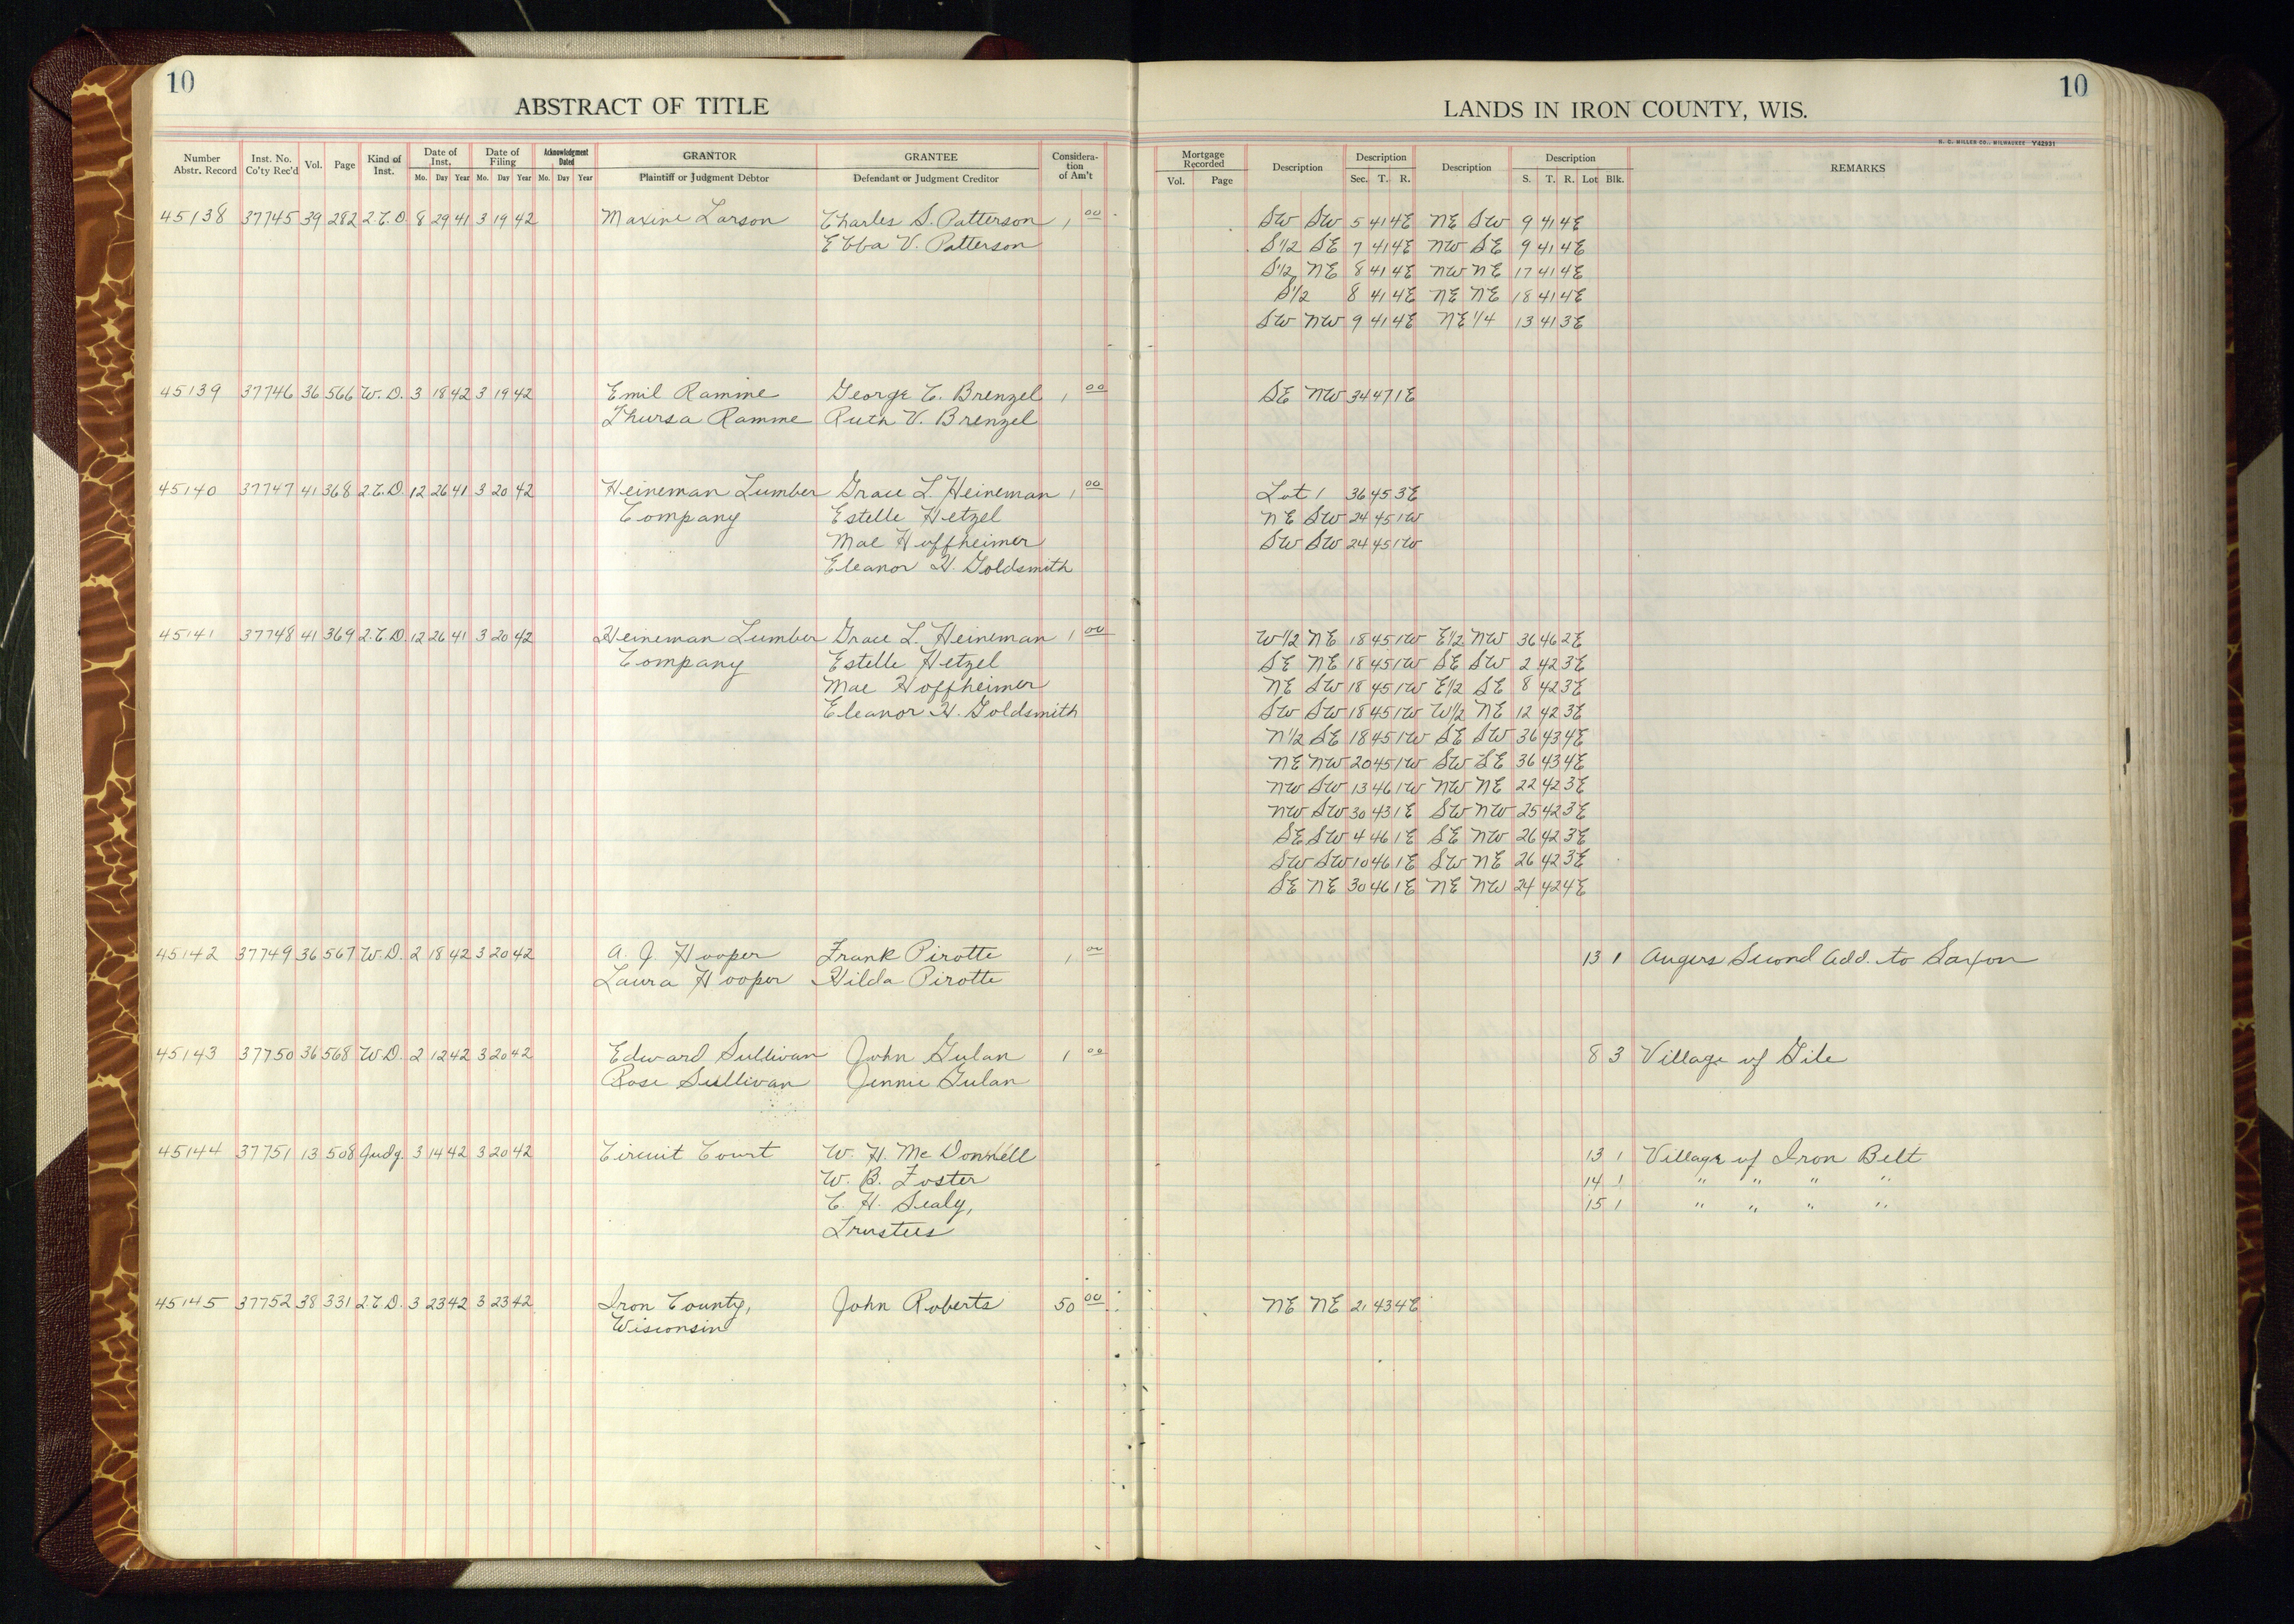 10
ABSTRACT OF TITLE
LANDS IN IRON COUNTY, WIS.
10
H. C. MILLER CO., MILWAUKEE Y42931
Number Abstr. Record | Inst. No. Co'ty Rec'd | Vol. | Page | Kind of Inst. | Date of Inst. Mo. Day Year | Date of Filing Mo. Day Year | Acknowledgment Dated Mo. Day Year | GRANTOR Plaintiff or Judgment Debtor | GRANTEE Defendant or Judgment Creditor | Consideration of Am't | Mortgage Recorded Vol. Page | Description | Description Sec. T. R. | Description | Description S. T. R. Lot Blk. | REMARKS
45138 37745 39 282 2.C.D. 8 29 41 3 19 42 Maxine Larson Charles S. Patterson 1 00 SW SW 5 41 4E NE SW 9 41 4E
Ebba V. Patterson S1/2 SE 7 41 4E NW SE 9 41 4E
S1/2 NE 8 41 4E NW NE 17 41 4E
S1/2 8 41 4E NE NE 18 41 4E
SW NW 9 41 4E NE 1/4 13 41 3E
45139 37746 36 566 W.D. 3 18 42 3 19 42 Emil Ramme George C. Brenzel 1 00 SE NW 34 47 1E
Thursa Ramme Ruth V. Brenzel
45140 37747 41 368 2.C.D. 12 26 41 3 20 42 Heineman Lumber Grace L. Heineman 1 00 Lot 1 36 45 3E
Company Estelle Hetzel NE SW 24 45 1W
Mae Hoffheimer SW SW 24 45 1W
Eleanor H. Goldsmith
45141 37748 41 369 2.C.D. 12 26 41 3 20 42 Heineman Lumber Grace L. Heineman 1 00 W1/2 NE 18 45 1W E1/2 NW 36 46 2E
Company Estelle Hetzel SE NE 18 45 1W SE SW 2 42 3E
Mae Hoffheimer NE SW 18 45 1W E1/2 SE 8 42 3E
Eleanor H. Goldsmith SW SW 18 45 1W W1/2 NE 12 42 3E
N1/2 SE 18 45 1W SE SW 36 43 4E
NE NW 20 45 1W SW SE 36 43 4E
NW SW 13 46 1W NW NE 22 42 3E
NW SW 30 43 1E SW NW 25 42 3E
SE SW 4 46 1E SE NW 26 42 3E
SW SW 10 46 1E SW NE 26 42 3E
SE NE 30 46 1E NE NW 24 42 4E
45142 37749 36 567 W.D. 2 18 42 3 20 42 A. J. Hooper Frank Pirotte 1 00 13 1 Angers Second Add. to Saxon
Laura Hooper Hilda Pirotte
45143 37750 36 568 W.D. 2 12 42 3 20 42 Edward Sullivan John Gulan 1 00 8 3 Village of Gile
Rose Sullivan Jennie Gulan
45144 37751 13 508 Judg. 3 14 42 3 20 42 Circuit Court W. H. Mc Donnell 13 1 Village of Iron Belt
W. B. Foster 14 1 " " " "
C. H. Sealy, 15 1 " " " "
Trustees
45145 37752 38 331 2.C.D. 3 23 42 3 23 42 Iron County, John Roberts 50 00 NE NE 21 43 4E
Wisconsin